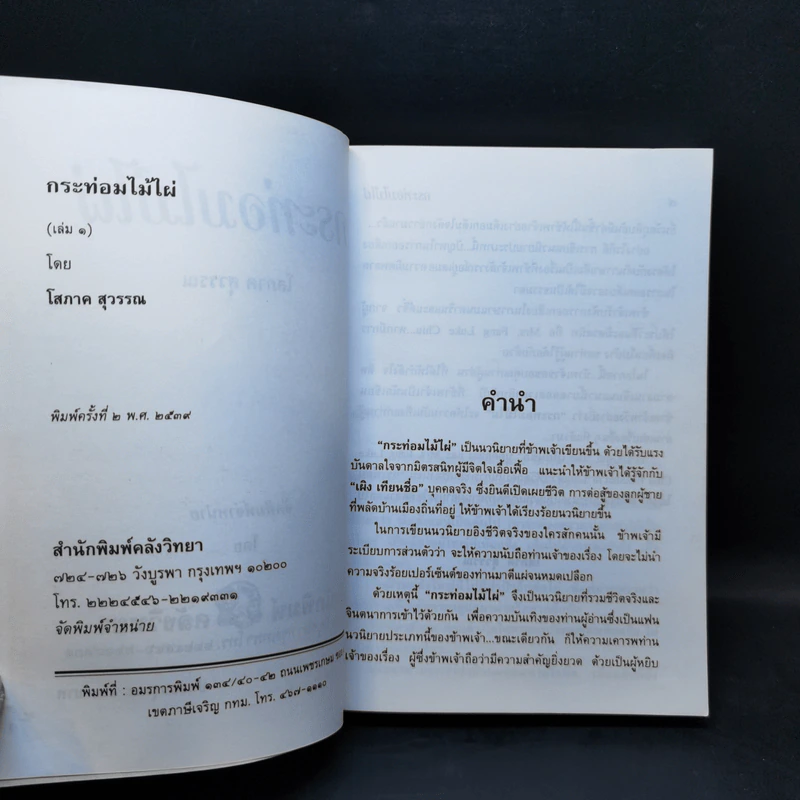 กระท่อมไม้ไผ่
(เล่ม ๑)
โดย
โสภาค สุวรรณ
พิมพ์ครั้งที่ ๒ พ.ศ. ๒๕๓๙
สำนักพิมพ์คลังวิทยา
๗๒๔-๗๒๖ วังบูรพา กรุงเทพฯ ๑๐๒๐๐
โทร. ๒๒๒๔๕๔๖-๒๒๑๙๓๓๑
จัดพิมพ์จำหน่าย
พิมพ์ที่ : อมรการพิมพ์ ๑๓๔/๔๐-๔๒ ถนนเพชรเกษม
เขตภาษีเจริญ กทม. โทร. ๔๖๗-๑๑๑๐
คำนำ
"กระท่อมไม้ไผ่" เป็นนวนิยายที่ข้าพเจ้าเขียนขึ้น ด้วยได้รับแรง
บันดาลใจจากมิตรสนิทผู้มีจิตใจเอื้อเฟื้อ แนะนำให้ข้าพเจ้าได้รู้จักกับ
"เผิง เทียนชื่อ" บุคคลจริง ซึ่งยินดีเปิดเผยชีวิต การต่อสู้ของลูกผู้ชาย
ที่พลัดบ้านเมืองถิ่นที่อยู่ ให้ข้าพเจ้าได้เรียงร้อยนวนิยายขึ้น
ในการเขียนนวนิยายอิงชีวิตจริงของใครสักคนนั้น ข้าพเจ้ามี
ระเบียบการส่วนตัวว่า จะให้ความนับถือท่านเจ้าของเรื่อง โดยจะไม่นำ
ความจริงร้อยเปอร์เซ็นต์ของท่านมาตีแผ่จนหมดเปลือก
ด้วยเหตุนี้ "กระท่อมไม้ไผ่" จึงเป็นนวนิยายที่รวมชีวิตจริงและ
จินตนาการเข้าไว้ด้วยกัน เพื่อความบันเทิงของท่านผู้อ่านซึ่งเป็นแฟน
นวนิยายประเภทนี้ของข้าพเจ้า...ขณะเดียวกัน ก็ให้ความเคารพท่าน
เจ้าของเรื่อง ผู้ซึ่งข้าพเจ้าถือว่ามีความสำคัญยิ่งยวด ด้วยเป็นผู้หยิบ